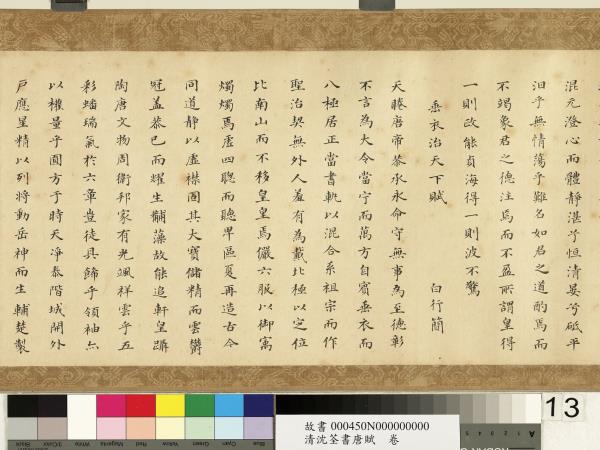 混元澄心而體靜湛兮恒清晏兮砥平
汨乎無情蕩乎難名如君之道酌焉而
不竭象君之德注焉而不盈所謂皇得
一則政能貞海得一則波不驚
垂衣治天下賦 白行簡
天睠唐帝恭承永命守無事為至德彰
不言為大令當宁而萬方自賓垂衣而
八極居正當書軌以混合系祖宗而作
聖治契無外人羞有為戴北極以定位
比南山而不移皇皇焉儼六服以御寓
燭燭焉虛四聰而聽卑區夏再造古今
同道靜以虛襟固其大寶儲精而雲欝
冠盖恭已而耀生黼藻故能追軒皇躡
陶唐文物周衞邦家有光颯祥雲乎五
彩蟠瑞氣於六章豈徒具飾乎領袖亦
以權量乎圓方于時天凈泰階城開外
戶應星精以列將動岳神而生輔楚製
13
故書 000450N000000000
清沈荃書唐賦 卷
Black
3/Color
White
Magenta
Red
Yellow
Green
Cyan
Blue